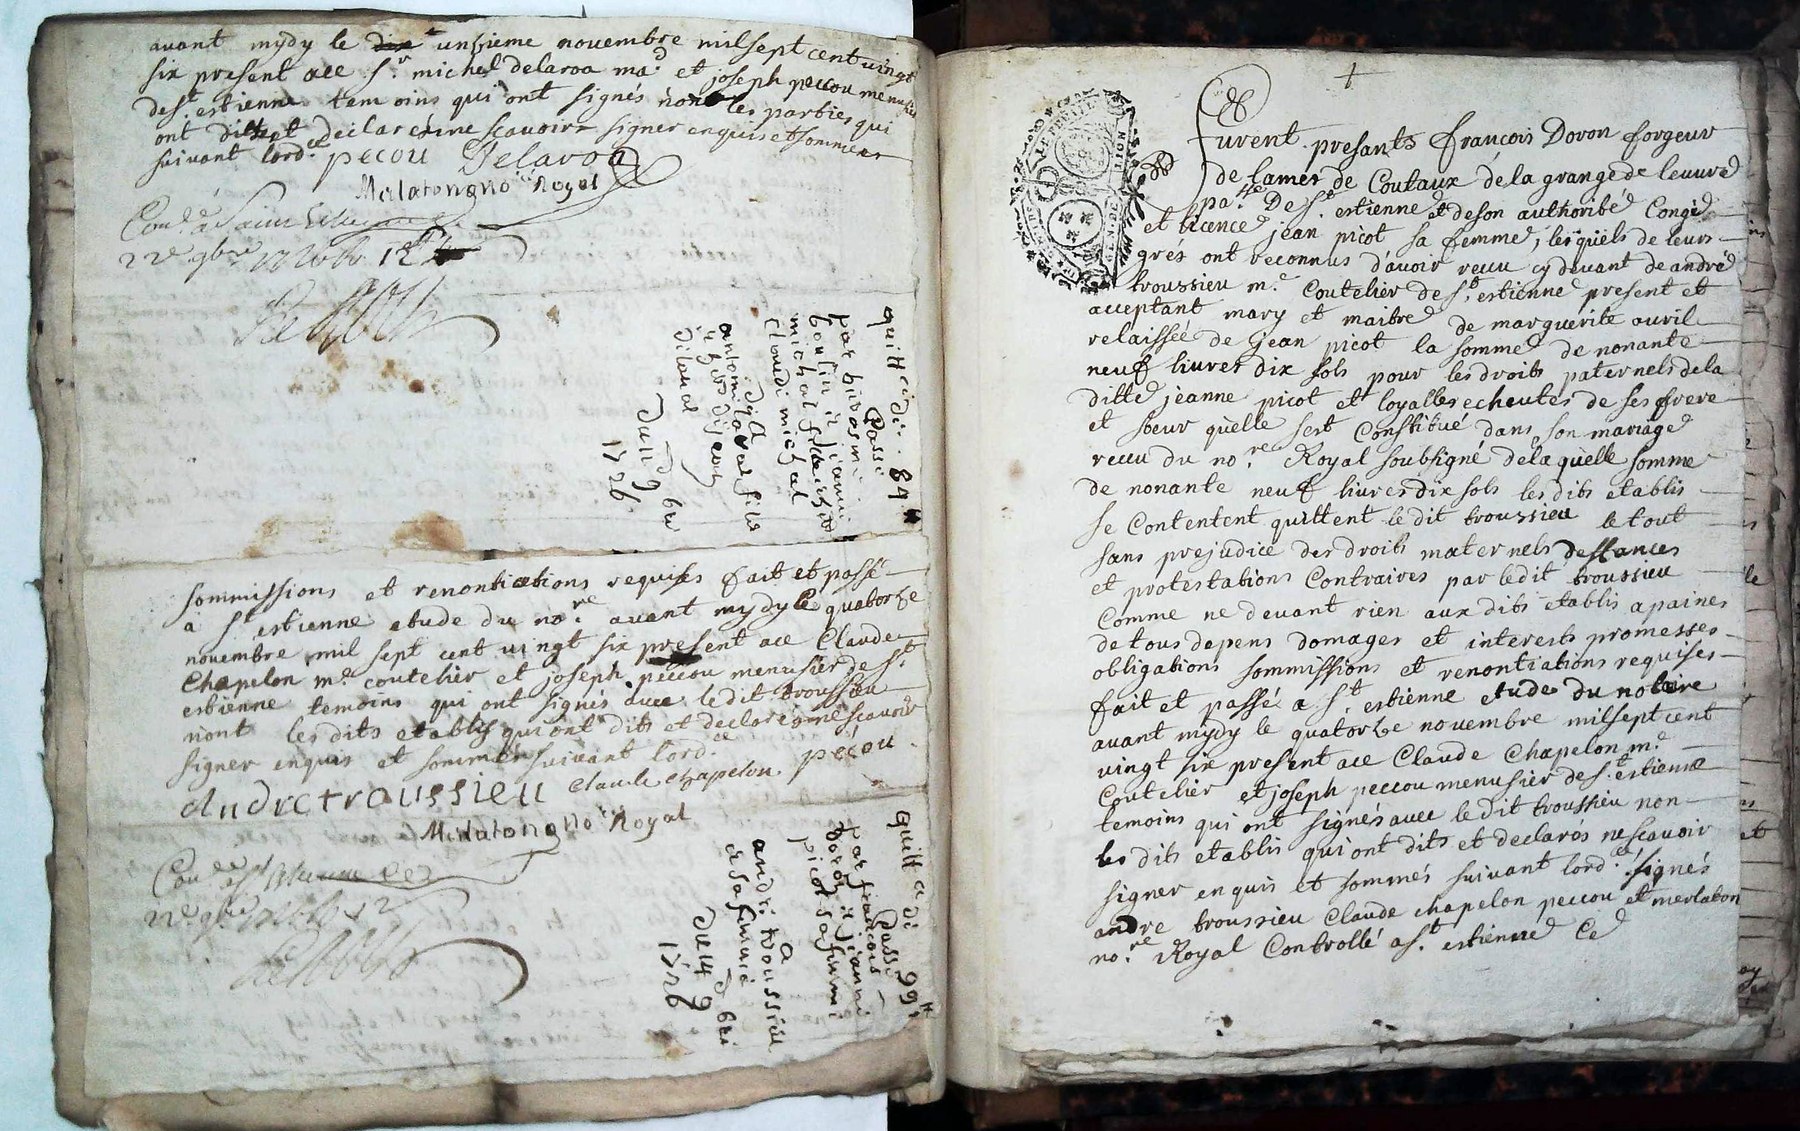 avant mydy le unzieme novembre mil sept cent vingt
six present ace s.r michel delaroa ma.d et joseph peccou menusier
de s.t estienne temoins qui ont signés non les parties qui
ont dit et declaré ne scauoir signer enquis et sommees
suivant lord.ce pecou Delaroa
Mulatong no.re Royal
Con.lé à
22.e 9bre
quitt.ce de 84
passé
par
michel
claudi michal
a
antoine laval fils
dilaual
du 11 9 bre
1726
sommissions et renontiations requises fait et passé
a s.t estienne etude du no.re avant mydy le quatorze
novembre mil sept cent vingt six present ace Claude
Chapelon m.e coutelier et joseph peccou menusier de s.t
estienne temoins qui ont signés avec le dit troussieu
nont les dits etablis qui ont dits et declaré ne scauoir
signer enquis et sommés suivant lord.ce
claude chapelon pecou
Andre troussieu
Mulatong no.re Royal
Con.lé
22.e 9bre
quitt.ce de 99
passé
par francois
doron et jeanne
picot sa femme
a
andre troussieu
et sa femme
du 14 9 bre
1726
+
furent presants françois Doron forgeur
de lames de Coutaux de la grange de leuure
pa.sse De s.t estienne et de son authorité Congé
et licence jean picot sa femme, lesquels de leurs
grés ont reconnus d'avoir receu cy devant de andré
troussieu m.e Coutelier de s.t estienne present et
acceptant mary et maitre de marguerite auril
relaissée de jean picot la somme de nonante
neuf livres dix sols pour les droits paternels de la
ditte jeanne picot et loyalles echeutes de ses frere
et sœur qu'elle sest Constitué dans son mariage
receu du no.re Royal soubsigné de la quelle somme
de nonante neuf livres dix sols les dits etablis
se Contentent quittent le dit troussieu le tout
sans prejudice des droits maternels
et protestations Contraires par le dit troussieu
Comme ne devant rien aux dits etablis a paines
de tous depens domages et interests promesses
obligations sommissions et renontiations requises
fait et passé a s.t estienne etude du notaire
avant mydy le quatorze novembre mil sept cent
vingt six present ace Claude Chapelon m.e
Coutelier et joseph peccou menusier de s.t estienne
temoins qui ont signés avec le dit troussieu non
les dits etablis qui ont dits et declarés ne scauoir
signer enquis et sommés suivant lord.ce signés
andre troussieu Claude chapelon peccou et merlaton
no.re Royal Controllé a s.t estienne Ce